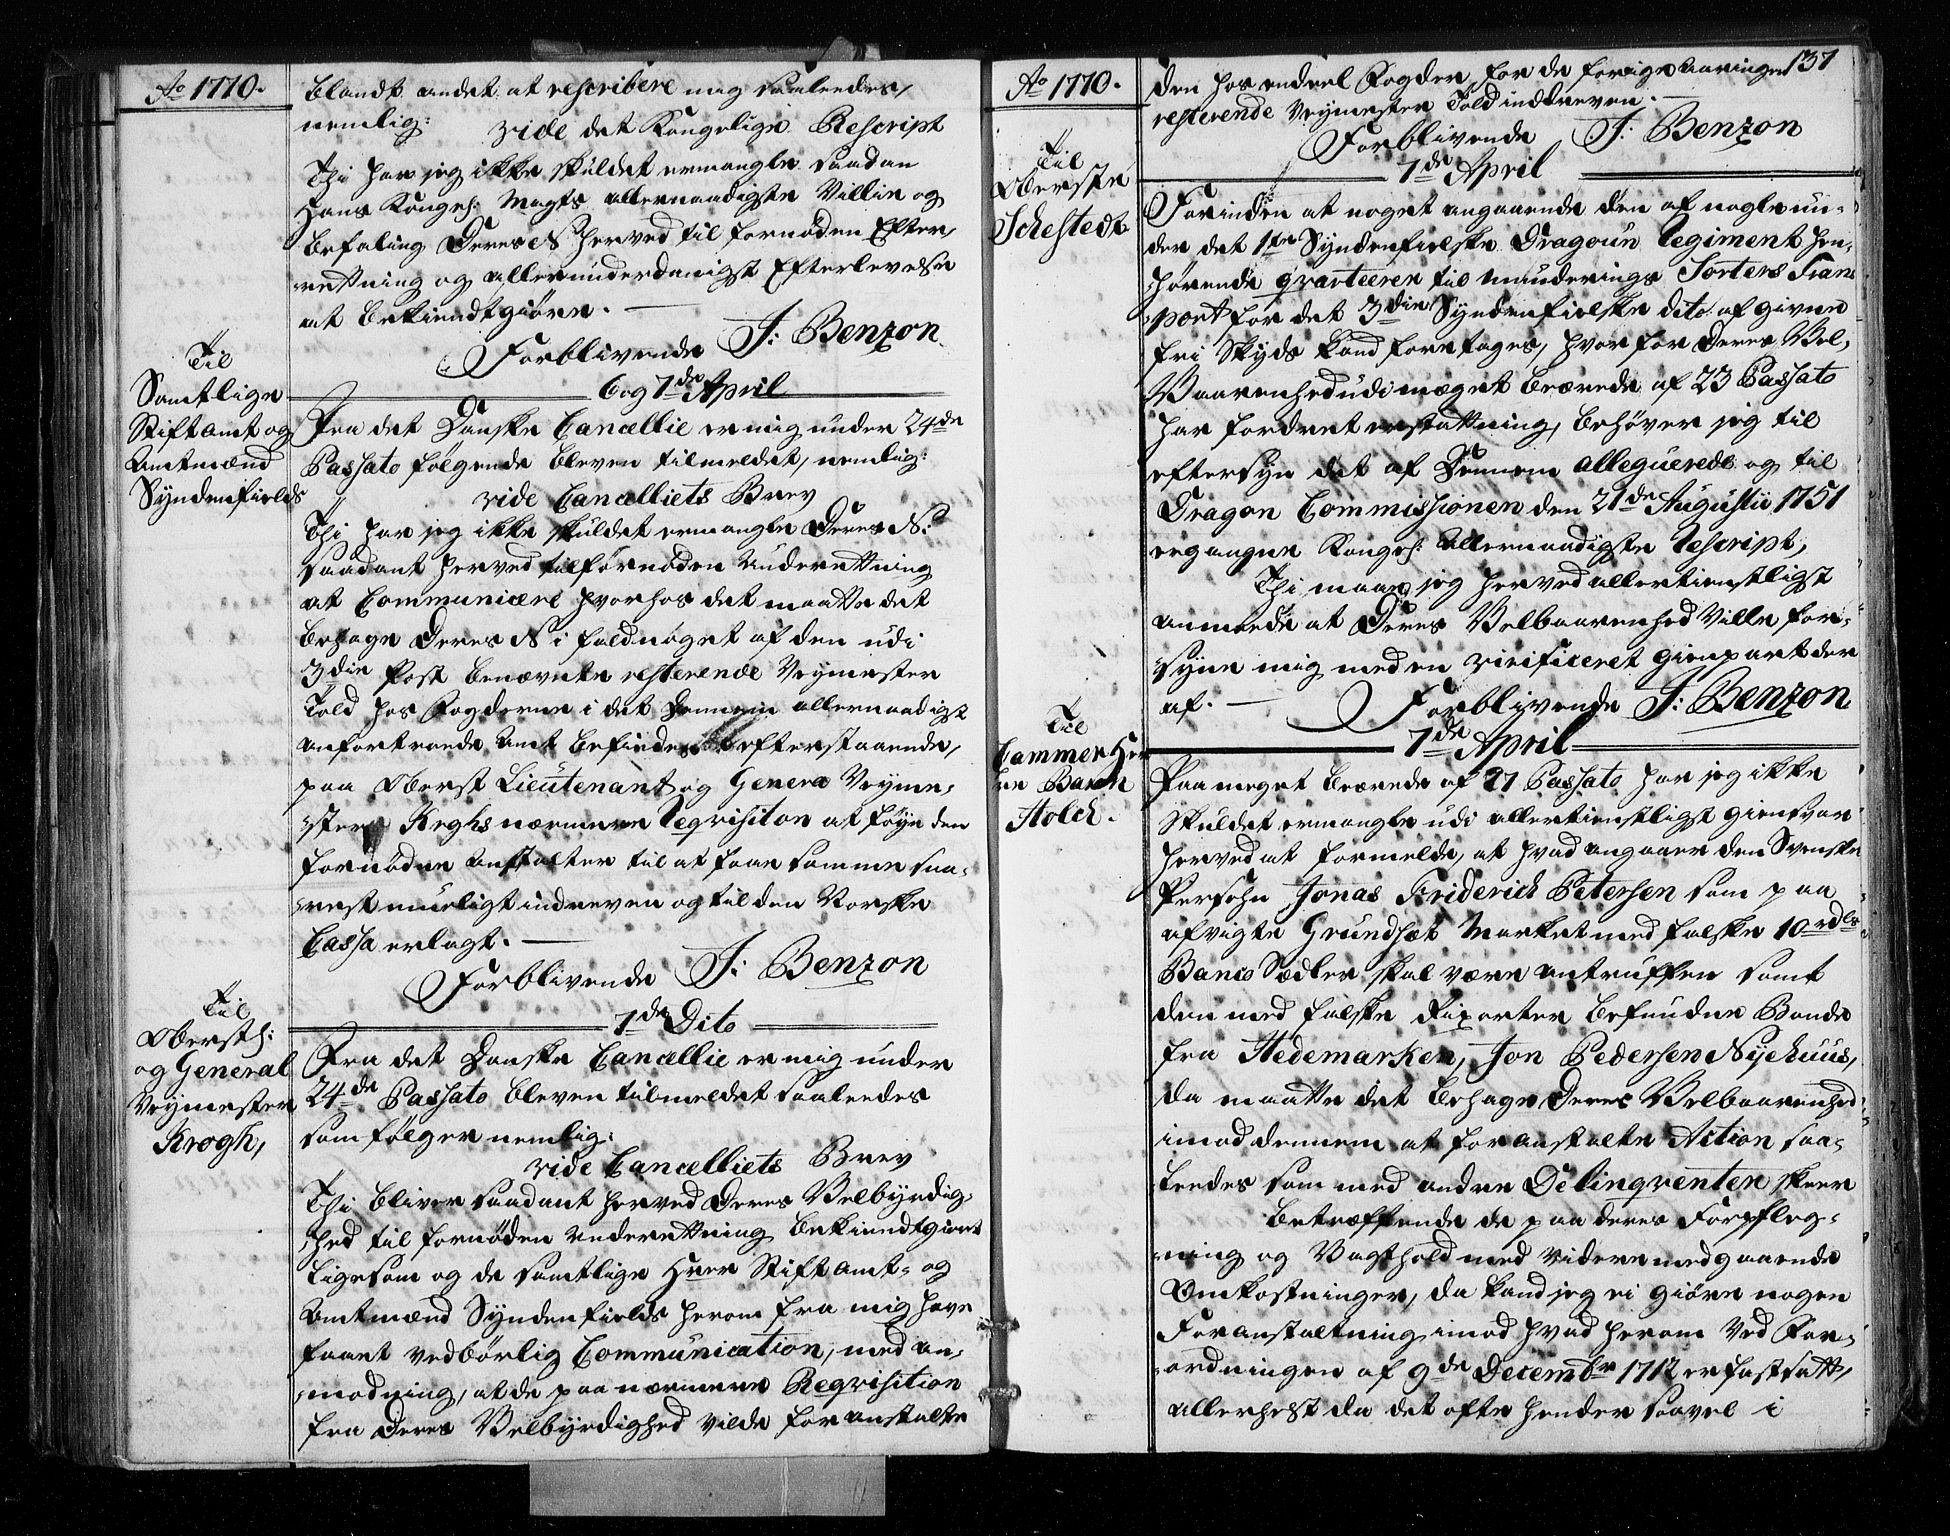 Ao 1770.
blandt andet at rescribere mig saaledes,
nemlig:
vide det Kongelige Rescript
Thi har jeg ikke skuldet ermangle saadan
Hans Kongel: Mayts allernaadigste Villie og
befaling Deres N herved til fornøden Efter,
rettning og allerunderdanigst Efterlevelse
at bekiendtgiøre.
Forblivende J: Benzon
Til
Samtlige
Stiftamt og
Amtmænd
Syndenfields
6 og 7de April
Fra det Danske Cancellie er mig under 24de
Passato følgende bleven tilmeldet, nemlig:
vide Cancelliets Brev
Thi har jeg ikke skuldet ermangle Deres N:
saadant herved til fornøden Underrettning
at Communicere hvorhos det maatte det
behage Deres N i fald noget af den udi
3die Post benævnte resterende Veymester
Told hos Fogderne i det Dennem allernaadigst
anfortroede Amt befindes efterstaaende,
paa Oberst Lieutenant og General Veyme,
ster Krghs nærmere Reqvisition at føye den
fornødne Anstalter til at faae samme saa,
rest mueligt inddreven og til den Norske
Cassa erlagt.
Forblivende J: Benzon
Til
Oberstl:
og General
Veymester
Krogh,
7de Dito
Fra det Danske Cancellie er mig under
24de Passato bleven tilmeldet saaledes
som følger nemlig:
vide Cancelliets Brev
Thi bliver saadant herved Deres Velbyrdig,
hed til fornøden Underrettning bekiendtgiort
ligesom og de samtlige Hrer Stiftamt- og
Amtmænd Syndenfields herom fra mig have
faaet vedbørlig Communication, med an,
modning, at de paa nærmere Reqvisition
fra Deres Velbyrdighed vilde foranstalte
Ao 1770.
137
den hos endeel Fogder, for de forige Aaringer
resterende Veymester Told inddreven.
Forblivende J: Benzon
Til
Oberste
Schestedt
7de April
Forinden at noget angaaende den af nogle un,
der det 1te Syndenfielske Dragoun Regiment hen,
hørende qvarteerer til munderings Sorters Trans
port for det 3die Syndenfielske dito afgivne
fri Skyds kand foretages, hvorfor Deres Vel,
Baarenhed udi meget beærede af 23 Passato
har fordret erstattning, behøver jeg til
eftersyn det af Dennem alleguerede og til
Dragon Commissionen den 21de Augustii 1751
ergangne Kongel: Allernaadigste Rescript,
Thi maae jeg herved allertienstligst
anmode at Deres Velbaarenhed ville for,
syne mig med en vivificeret gienpart der
af.
Forblivende J: Benzon
Til
Cammer Her
re Baron
Holck.
7de April
Paa meget beærede af 27 Passato har jeg ikke
skuldet ermangle udi allertienstligst giensvar
herved at formelde, at hvad angaaer den Svenske
Persohn Jonas Friderich Petersen som paa
afvigte Grundset Marked med falske 10 rdlr
Banco Sedler skal være antruffen samt
den med falske Fixerter befundne Bonde
fra Hedemarken, Jon Pedersen Nyehuus,
da maatte det behage Deres Velbaarenhed
imod dennem at foranstalte Action saa,
ledes som med andre Delinqventer skeer
betræffende de paa deres Forpfleg,
ning og Vagthold med videre medgaaende
Omkostninger, da kand jeg ei giøre nogen
Foranstaltning imod hvad herom ved For,
ordningen af 9de Decembr 1712 er fastsatt,
allerhelst da det ofte hender saavel i